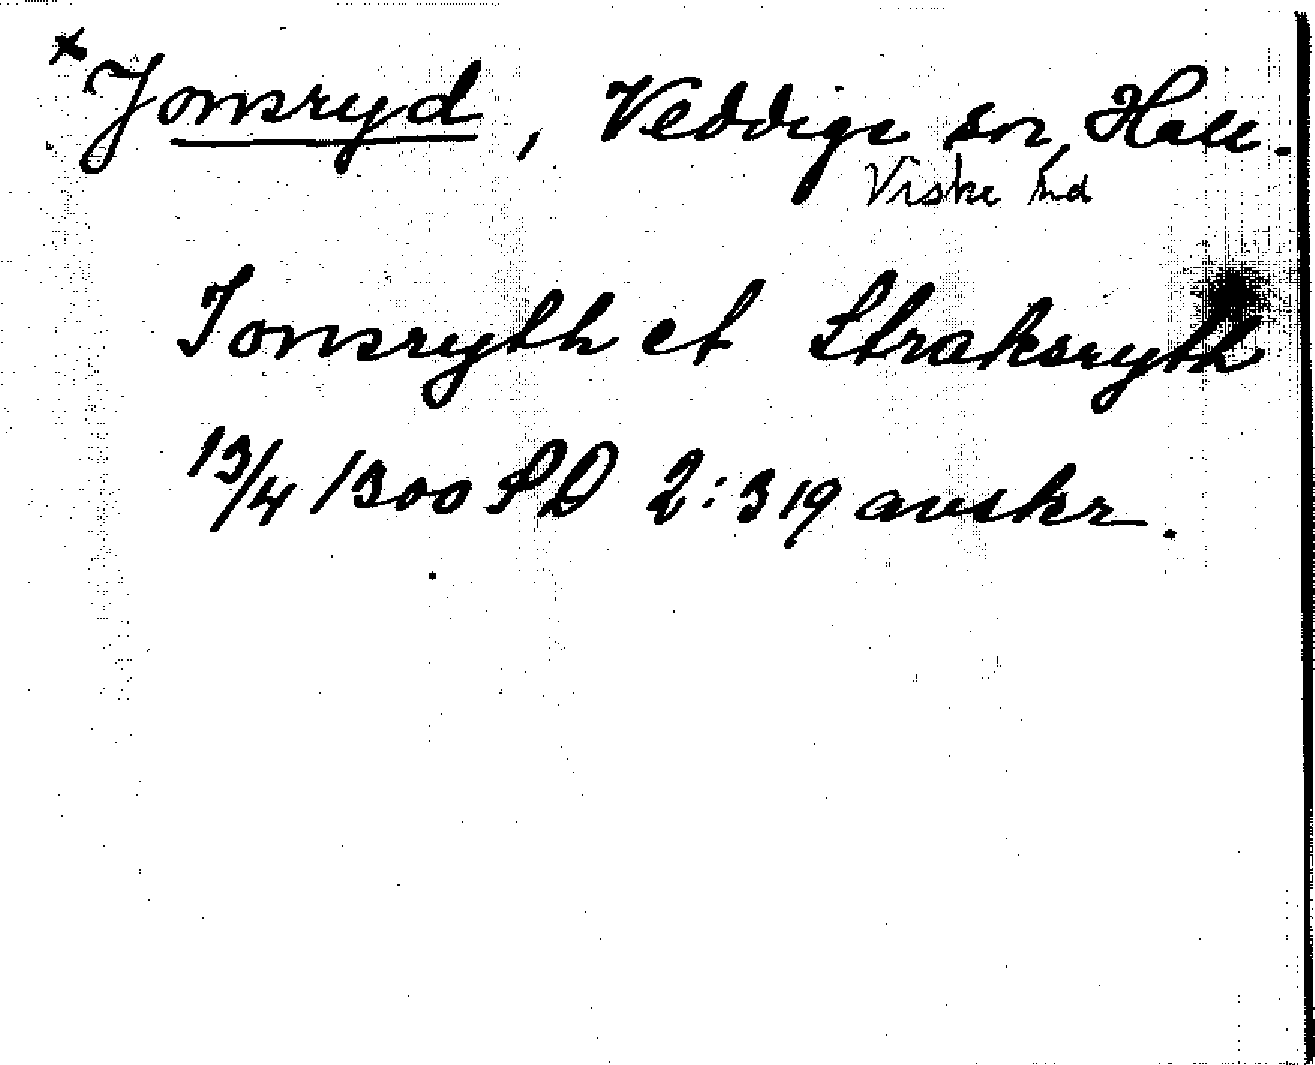 *Jonsryd, Veddige sn, Hall.
Viske hd
Jonsryth et Straksryth
13/4 1300 SD 2:319 avskr.